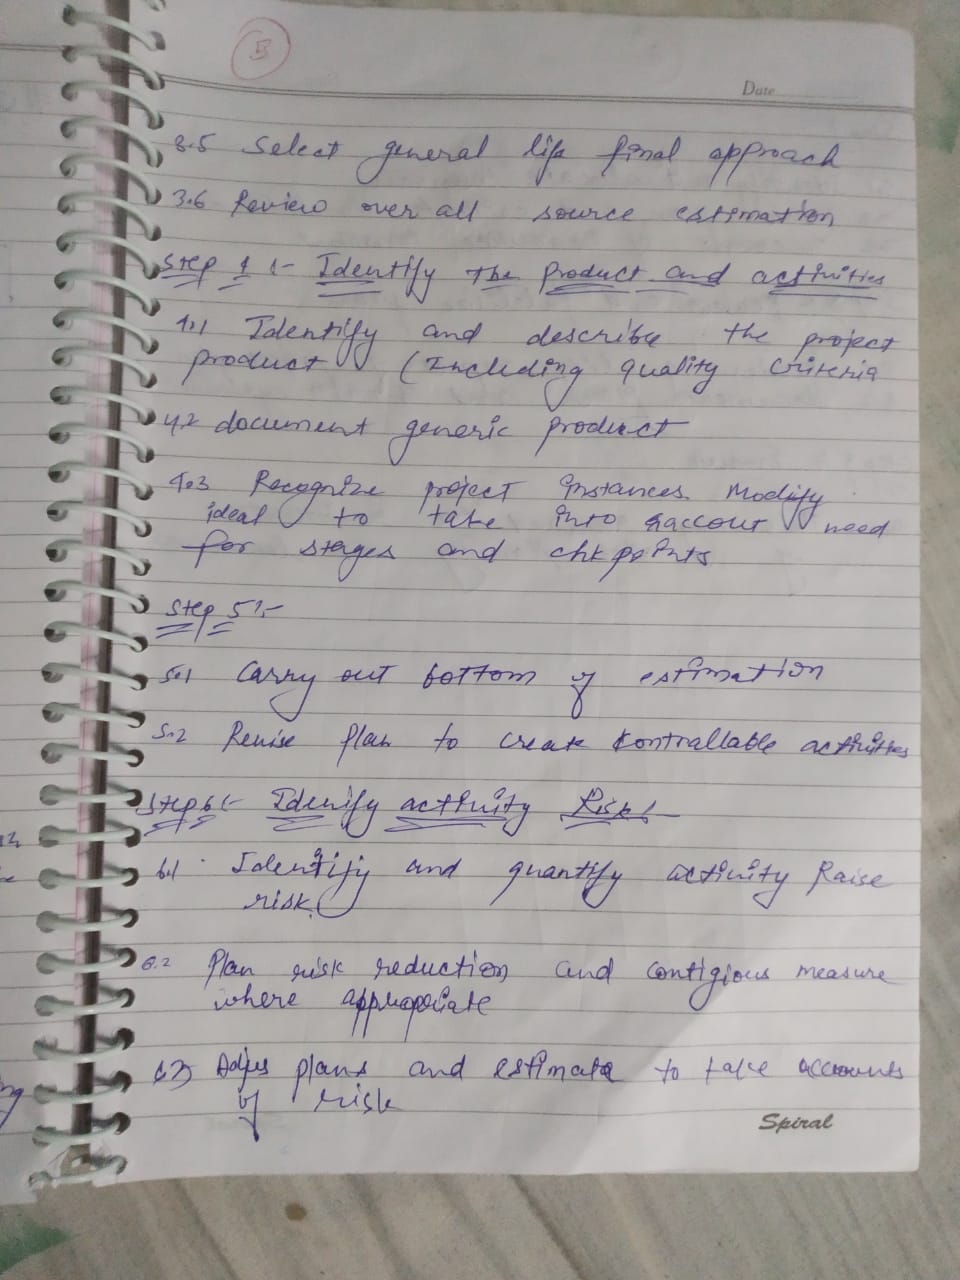 5
Date
3.5 Select general life final approach
3.6 Review over all source estimation
Step 4 :- Identify the product and activities
4.1 Identify and describe the project
product (Including quality criteria
4.2 document generic product
4.3 Recognize project instances Modify
ideal to take into accout need
for stages and chk points
Step 5 :-
5.1 Carry out bottom of estimation
5.2 Revise plan to create kontrallable activities
Step 6 :- Idenify activity Risk :-
6.1 Identify and quantify activity Raise
risk
6.2 Plan risk reduction and contigious measure
where appropriate
6.3 Adjus plans and estimate to take accounts
of risk
Spiral